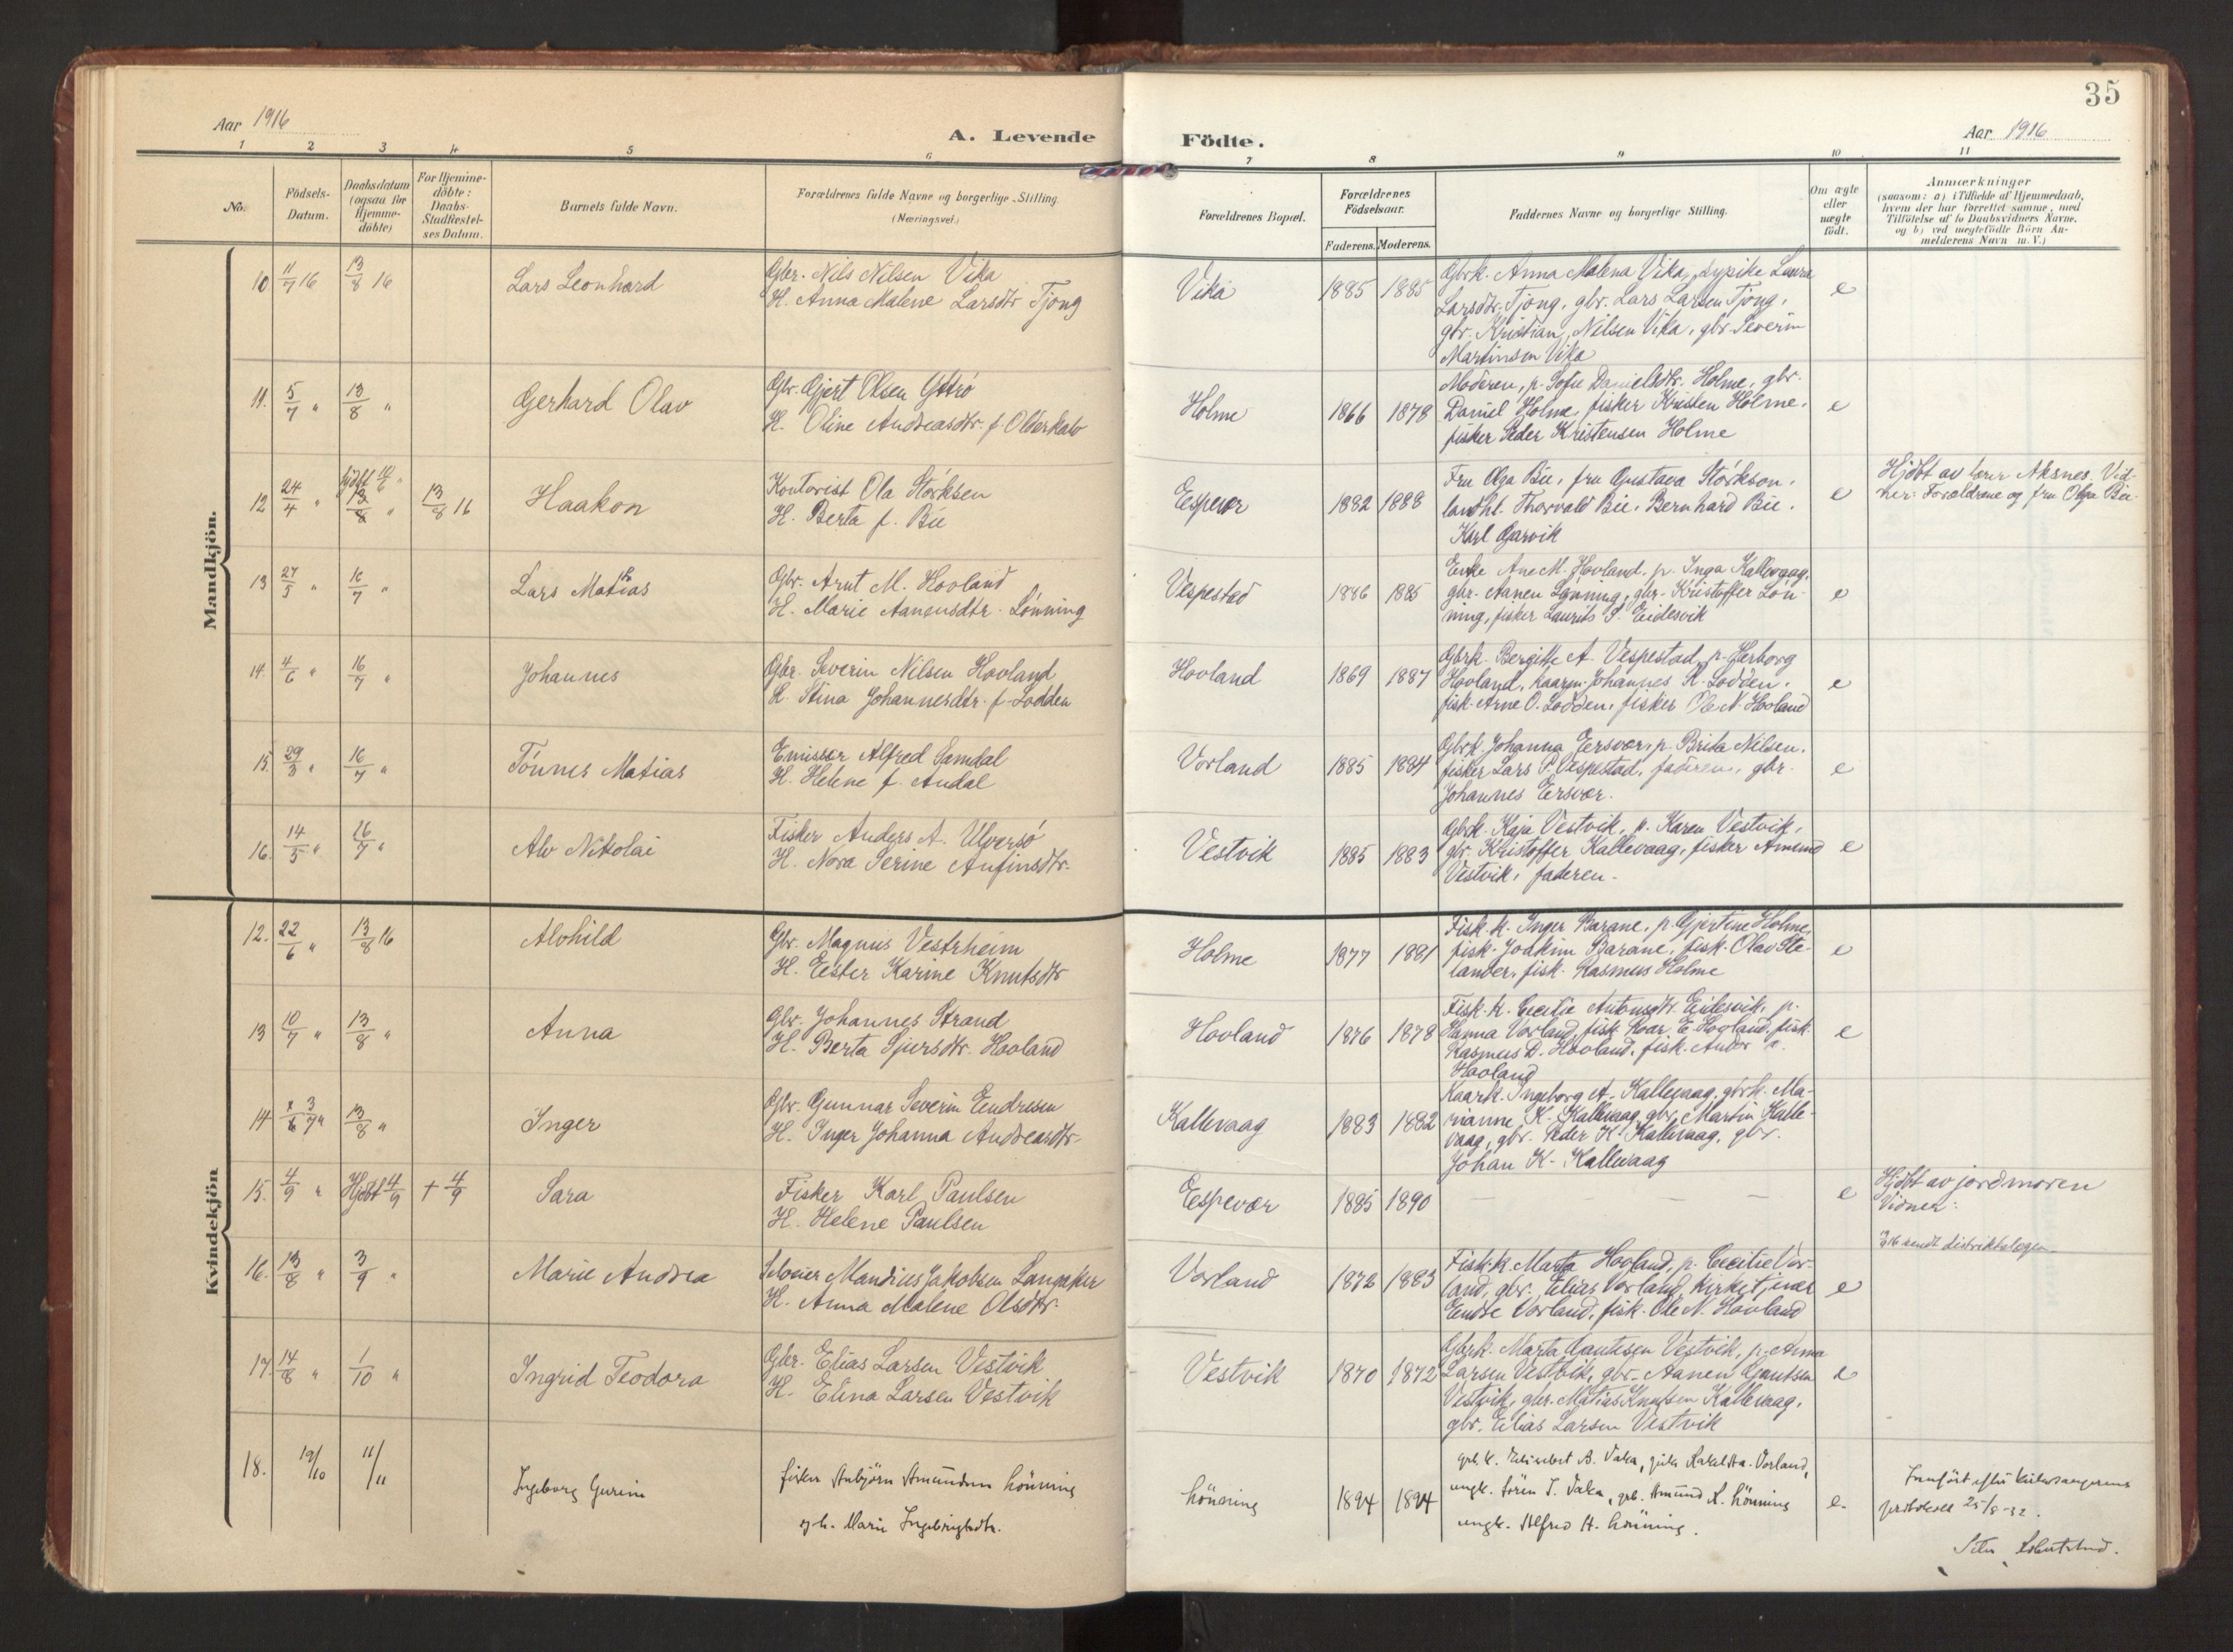 35
Aar 1916
A. Levende Födte.
Aar 1916
1 2 3 4 5 6 7 8 9 10 11
No.
Födsels-
Datum.
Daabsdatum
(ogsaa for
Hjemme-
döbte)
For Hjemme-
döbte:
Daabs-
Stadfæstel-
ses Datum.
Barnets fulde Navn.
Forældrenes fulde Navne og borgerlige Stilling.
(Næringsvei.)
Forældrenes Bopæl.
Forældrenes
Födselsaar.
Faderens. Moderens.
Faddernes Navne og borgerlige Stilling.
Om ægte
eller
uægte
födt.
Anmærkninger
(saasom: a) i Tilfælde af Hjemmedaab,
hvem der har forrettet samme, med
Tilföielse af to Daabsvidners Navne,
og b) ved uægtefödte Börn An-
melderens Navn m. V.)
Mandkjön.
10 11/7 16 13/8 16
Lars Leonhard
Gbr. Nils Nilsen Vika
H. Anna Malene Larsdtr Tjong
Vika
1885 1885
Gbrk. Anna Malena Vika, pike Laura
Larsdtr. Tjong, gbr. Lars Larsen Tjong,
gbr. Kristian Nilsen Vika, gbr Severin
Martinsen Vika
e
11. 5/7 " 13/8 "
Gerhard Olav
Gbr. Gjert Olsen Yttrö
H. Oline Andreasdtr. f. Olderkalv
Holme
1866 1878
Moderen, p. Sofie Danielsdtr. Holme, gbr.
Daniel Holme, fisker Kristen Holme,
fisker Peder Kristensen Holme
e
12 24/4 " hjdbt 10/6 " 13/8 " 13/8 16
Haakon
Kontorist Ola Störksen
H. Berta f. Bie
Espevær
1882 1888
Fru Olga Bie, fru Gustava Störkson,
landhl. Thorvald Bie, Bernhard Bie,
Karl Garvik
e
Hjdbt av lærer Aksnes. Vid-
ner: Forældrene og fru Olga Bie
13 27/5 " 16/7 "
Lars Mathias
Gbr. Arnt M. Hovland
H. Marie Aanensdtr. Lönning
Vespestad
1886 1885
Enke Ane M. Hovland, p. Inga Kallevaag,
gbr. Aanen Lönning, gbr. Kristoffer Lön-
ning, fisker Laurits P. Eidesvik
e
14. 4/6 " 16/7 "
Johannes
Gbr. Severin Nilsen Hovland
H. Stina Johannesdtr. f. Lodden
Hovland
1869 1887
Gbrk. Bergitte A. Vespestad, p. Herborg
Hovland, kaarm. Johannes K. Lodden,
fisk. Arne O. Lodden, fisker Ole N. Hovland
e
15. 29/3 " 16/7 "
Tönnes Matias
Emissær Alfred Samdal
H. Helene f. Audal
Vorland
1885 1884
Gbrk. Johanna Eersvær, p. Brita Nilsen,
fisker Lars P. Vespestad, faderen, gbr.
Johannes Eersvær.
e
16. 14/5 " 16/7 "
Alv Nikolai
Fisker Anders A. Ulversö
H. Nora Serine Anfinsdtr.
Vestvik
1885 1883
Gbrk. Kaja Vestvik, p. Karen Vestvik,
gbr. Kristoffer Kallevaag, fisker Amund
Vestvik, faderen.
e
Kvindekjön
12. 22/6 " 13/8 16
Alvhild
Gbr. Magnus Vestrheim
H. Eester Karine Knutsdtr
Holme
1877 1881
Fisk. k. Inger Barane, p. Gjertine Holme,
fisk. Joakim Barane, fisk. Olav Ste-
lander, fisk. Rasmus Holme
e
13 10/7 " 13/8 "
Anna
Gbr. Johannes Strand
H. Berta Sjursdtr. Hovland
Hovland
1876 1878
Fisk. k. Cecilie Antonsdtr. Eidesvik, p.
Hanna Vorland, fisk. Roar E. Hovland, fisk.
Rasmus D. Hovland, fisk.
Hovland
e
14. 3/7 " 13/8 "
Inger
Gbr. Gunnar Severin Eendresen
H. Inger Johanna Andreasdtr.
Kallevaag
1883 1882
Kaark. Ingeborg A. Kallevaag, gbrk. Ma-
rianne K. Kallevaag, gbr. Martin Kalle-
vaag, gbr. Peder K. Kallevaag, gbr.
Johan K. Kallevaag
15. 4/9 " Hjdbt 4/9 + 4/9
Sara
Fisker Karl Paulsen
H. Helene Paulsen
Eespevær
1885 1890
— — — —
e
Hjdbt av jordmoren
Vidner:
sendt distriktslægen
16. 13/8 " 3/9 "
Marie Andrea
Mandius Jakobsen Langaker
H. Anna Malene Olsdtr.
Vorland
1872 1883
Fisk. k. Marta Hovland, p. Cecilie Vor-
land, gbr. Elias Vorland, kirketjener
Eendre Vorland, fisk. Ole N. Hovland
e
17. 14/8 " 1/10 "
Ingrid Teodora
Gbr. Elias Larsen Vestvik
H. Elina Larsen Vestvik
Vestvik
1870 1872
Gbrk. Marta Gautesen Vestvik, p. Anna
Larsen Vestvik, gbr. Aanen Gautsen
Vestvik, gbr. Matias Knutsen Kallevaag,
gbr. Elias Larsen Vestvik
e
18. 19/10 11/11
Ingeborg Gurine
fisker Anbjörn Amundsen Lönning
og h. Marie Ingebrigtsdtr.
Lönning
1894 1894
gbr. k. Elisabet B. Vaka, Vorland,
ungk. Sören T. Vaka, grb. Amund A. Lönning
ungk. Alfred H. Lönning.
e.
Innfört efter
protokoll 25/8-32.